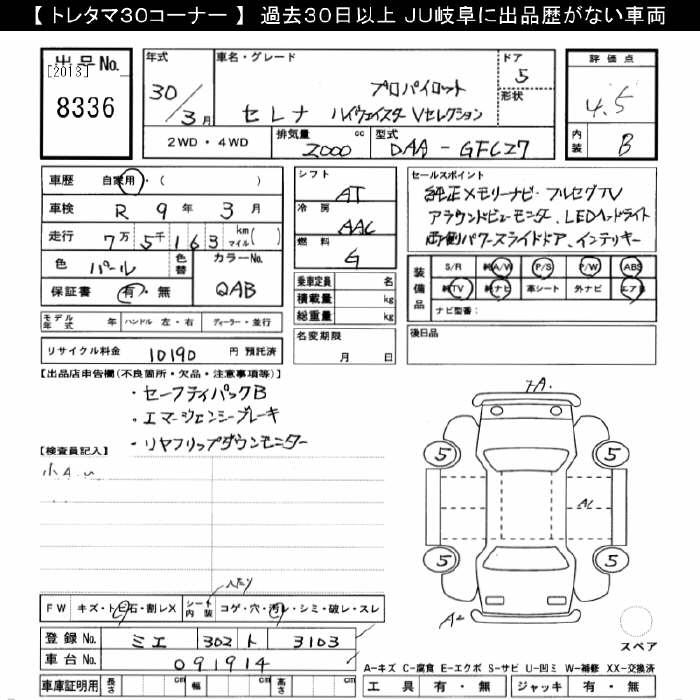 【 トレタマ30コーナー 】 過去30日以上 JU岐阜に出品歴がない車両
出品No.
[2013]
8336
年式
30/3月
車名・グレード
プロパイロット
セレナ ハイウェイスター Vセレクション
ドア
5
形状
評価点
4.5
内装
B
2WD・4WD
排気量
2000 cc
型式
DAA - GFC27
車歴 自家用・( )
車検 R 9年 3月
走行 7万5千163 km マイル( )
色 パール 色替
カラーNo.
QAB
保証書 有・無
モデル年式 年 ハンドル 左・右 ディーラー・並行
リサイクル料金 10190 円 預託済
シフト
AT
冷房
AAC
燃料
G
乗車定員 名
積載量 kg
総重量 kg
名変期限
月 日
セールスポイント
純正メモリーナビ・フルセグTV
アラウンドビューモニター、LEDヘッドライト
両側パワースライドドア、インテリキー
装備品
S/R 純A/W P/S P/W ABS
純TV 純ナビ 革シート 外ナビ エアB
ナビ型番:
後日品
【出品店申告欄(不良箇所・欠品・注意事項等)】
・セーフティパックB
・エマージェンシーブレーキ
・リヤフリップダウンモニター
【検査員記入】
小A
FW キズ・トビ石・割レX
シート内装 コゲ・穴・汚レ・シミ・破レ・スレ
登録No. ミエ 302 ト 3103
車台No. 091914
車庫証明用 長さ cm 幅 cm 高さ cm
5
5
5
5
スペア
A-キズ C-腐食 E-エクボ S-サビ U-凹ミ W-補修 XX-交換済
工具 有・無 ジャッキ 有・無